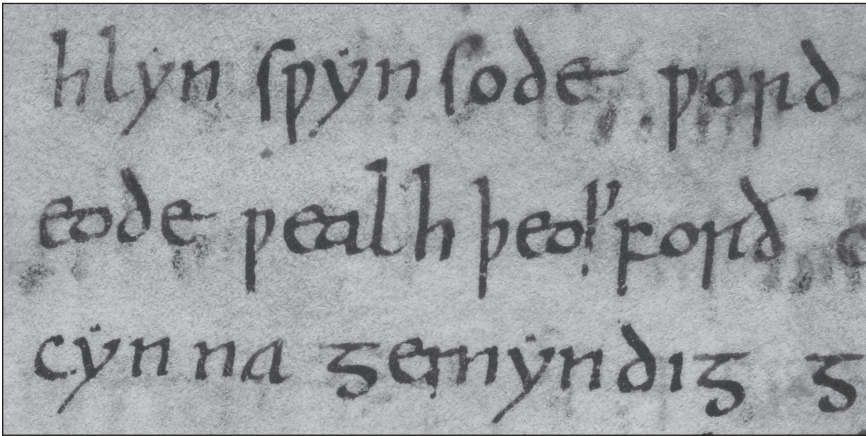 hlẏn sƿẏnsode ƿord
eode ƿealh þeoƿ forð
cẏnna gemẏndig g